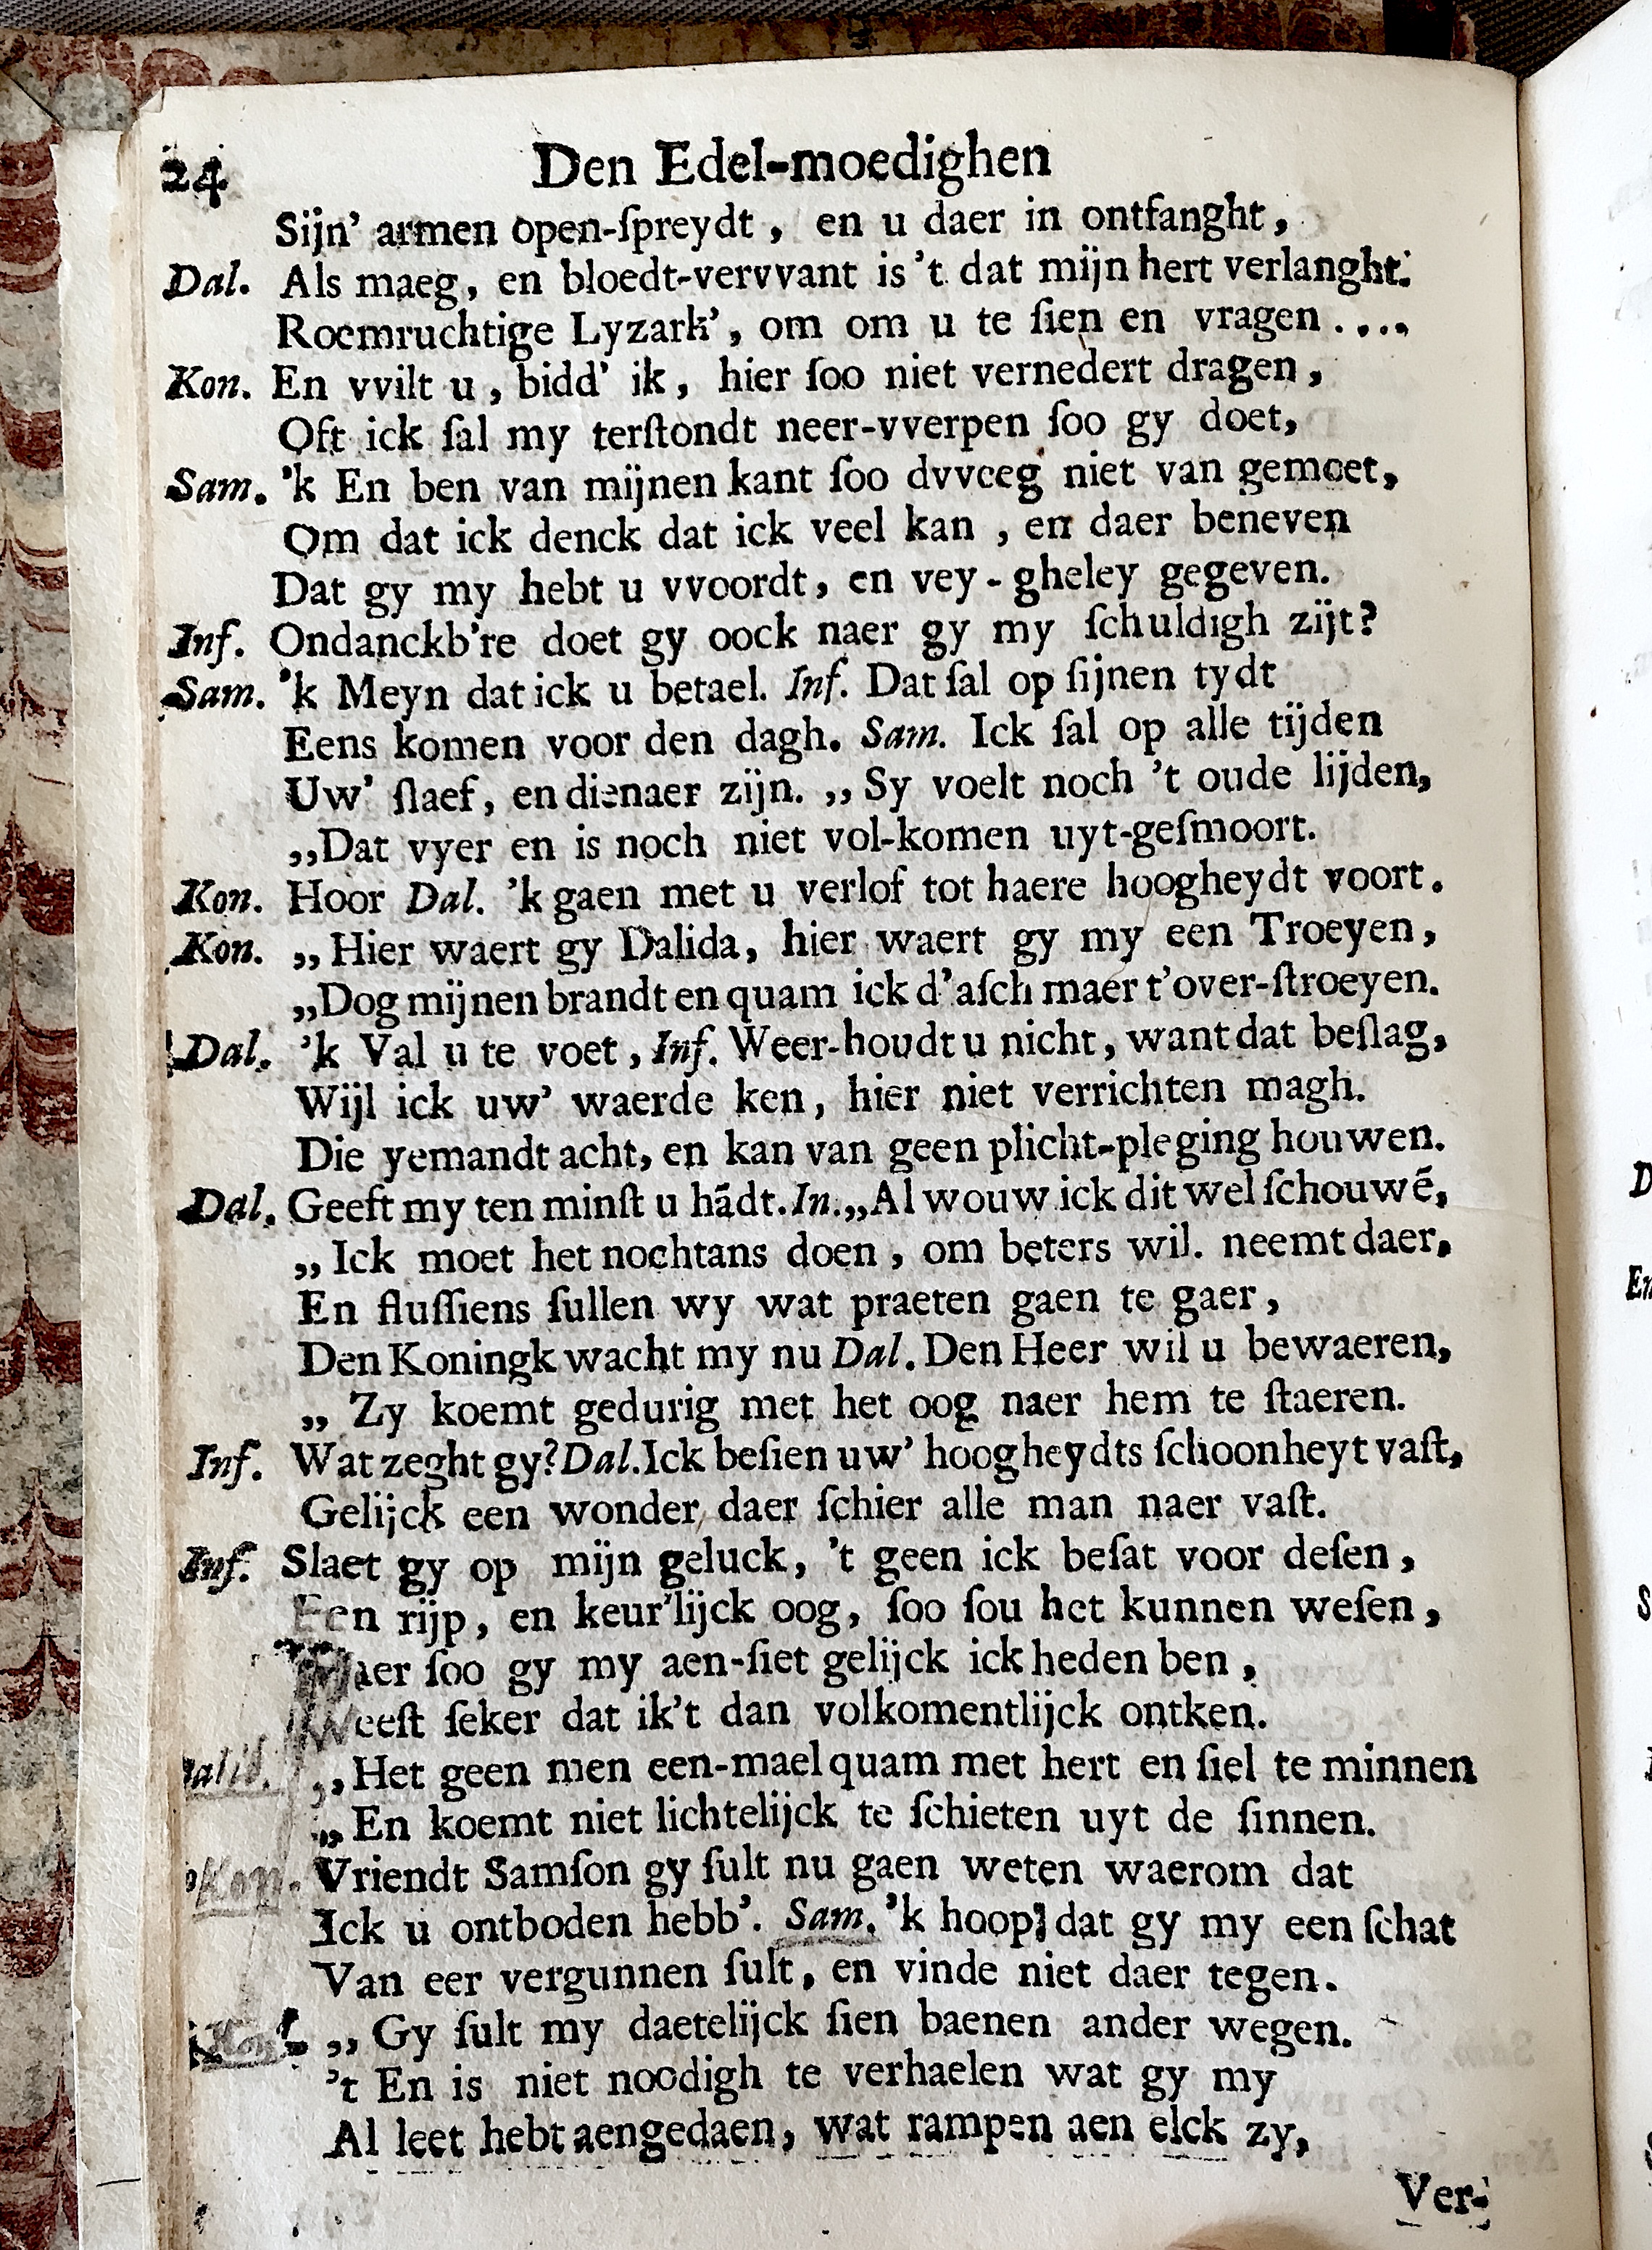 24 Den Edel-moedighen
Sijn' armen open-ſpreydt, en u daer in ontfanght,
Dal. Als maeg, en bloedt-vervvant is 't dat mijn hert verlanght.
Roemruchtige Lyzark', om om u te ſien en vragen....
Kon. En vvilt u, bidd' ik, hier ſoo niet vernedert dragen,
Oft ick ſal my terſtondt neer-vverpen ſoo gy doet,
Sam. 'k En ben van mijnen kant ſoo dvveeg niet van gemoet,
Om dat ick denck dat ick veel kan, en daer beneven
Dat gy my hebt u vvoordt, en vey-gheley gegeven.
Inf. Ondanckb're doet gy oock naer gy my ſchuldigh zijt?
Sam. 'k Meyn dat ick u betael. Inf. Dat ſal op ſijnen tydt
Eens komen voor den dagh. Sam. Ick ſal op alle tijden
Uw' ſlaef, en dienaer zijn. ,, Sy voelt noch 't oude lijden,
,,Dat vyer en is noch niet vol-komen uyt-geſmoort.
Kon. Hoor Dal. 'k gaen met u verlof tot haere hoogheydt voort.
Kon. ,, Hier waert gy Dalida, hier waert gy my een Troeyen,
,,Dog mijnen brandt en quam ick d'aſch maer t'over-ſtroeyen.
Dal. 'k Val u te voet, Inf. Weer-houdt u nicht, want dat beſlag,
Wijl ick uw' waerde ken, hier niet verrichten magh.
Die yemandt acht, en kan van geen plicht-pleging houwen.
Dal. Geeft my ten minſt u hādt. In. ,,Al wouw ick dit wel ſchouwē,
,, Ick moet het nochtans doen, om beters wil. neemt daer,
En fluſſiens ſullen wy wat praeten gaen te gaer,
Den Koningk wacht my nu Dal. Den Heer wil u bewaeren,
,, Zy koemt gedurig met het oog naer hem te ſtaeren.
Inf. Wat zeght gy? Dal. Ick beſien uw' hoogheydts ſchoonheyt vaſt,
Gelijck een wonder daer ſchier alle man naer vaſt.
Inf. Slaet gy op mijn geluck, 't geen ick beſat voor deſen,
Een rijp, en keur'lijck oog, ſoo ſou het kunnen weſen,
Maer ſoo gy my aen-ſiet gelijck ick heden ben,
Weeſt ſeker dat ik't dan volkomentlijck ontken.
,,Het geen men een-mael quam met hert en ſiel te minnen
,,En koemt niet lichtelijck te ſchieten uyt de ſinnen.
Kon. Vriendt Samſon gy ſult nu gaen weten waerom dat
Ick u ontboden hebb'. Sam. 'k hoop dat gy my een ſchat
Van eer vergunnen ſult, en vinde niet daer tegen.
Kon. ,, Gy ſult my daetelijck ſien baenen ander wegen.
't En is niet noodigh te verhaelen wat gy my
Al leet hebt aengedaen, wat rampen aen elck zy,
Ver-